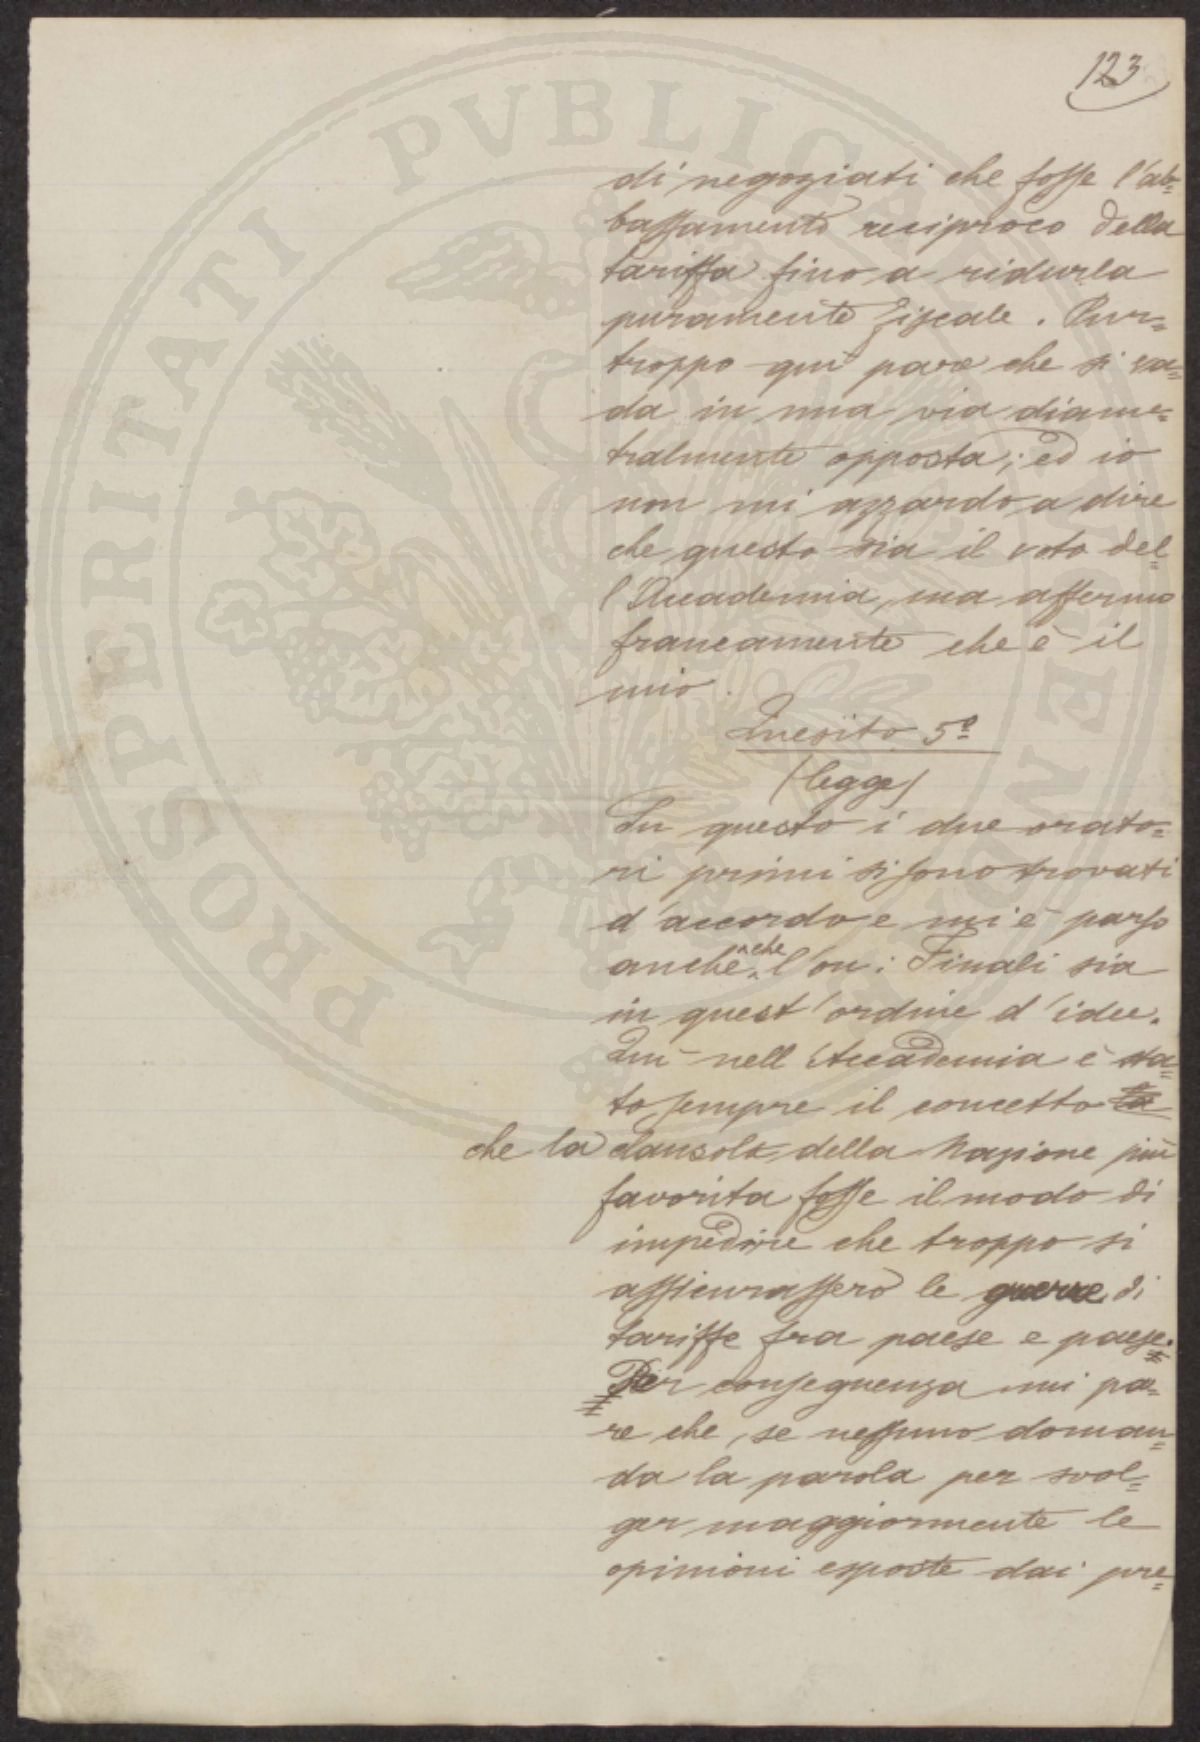 123
di negoziati che fosse l'ab=
bassamento reciproco della
tariffa fino a ridurla
puramente fiscale. Pur=
troppo qui pare che si va=
da in una via diame=
tralmente opposta; ed io
non mi azzardo a dire
che questo sia il voto del=
l'Accademia, ma affermo
francamente che è il
mio.
Quesito 5º
(legge)
In questo i due orato=
ri primi si sono trovati
d'accordo e mi è parso
anche che l'on: Finali sia
in quest'ordine d'idee.
Qui nell'Accademia è sta=
to sempre il concetto la
che la clausola della Nazione più
favorita fosse il modo di
impedire che troppo si
assicurassero le guerre di
tariffe fra paese e paese.
Per conseguenza mi pa=
re che, se nessuno doman=
da la parola per svol=
ger maggiormente le
opinioni esposte dai pre=
PROSPERITATI PVBLICAE AVGENDAE